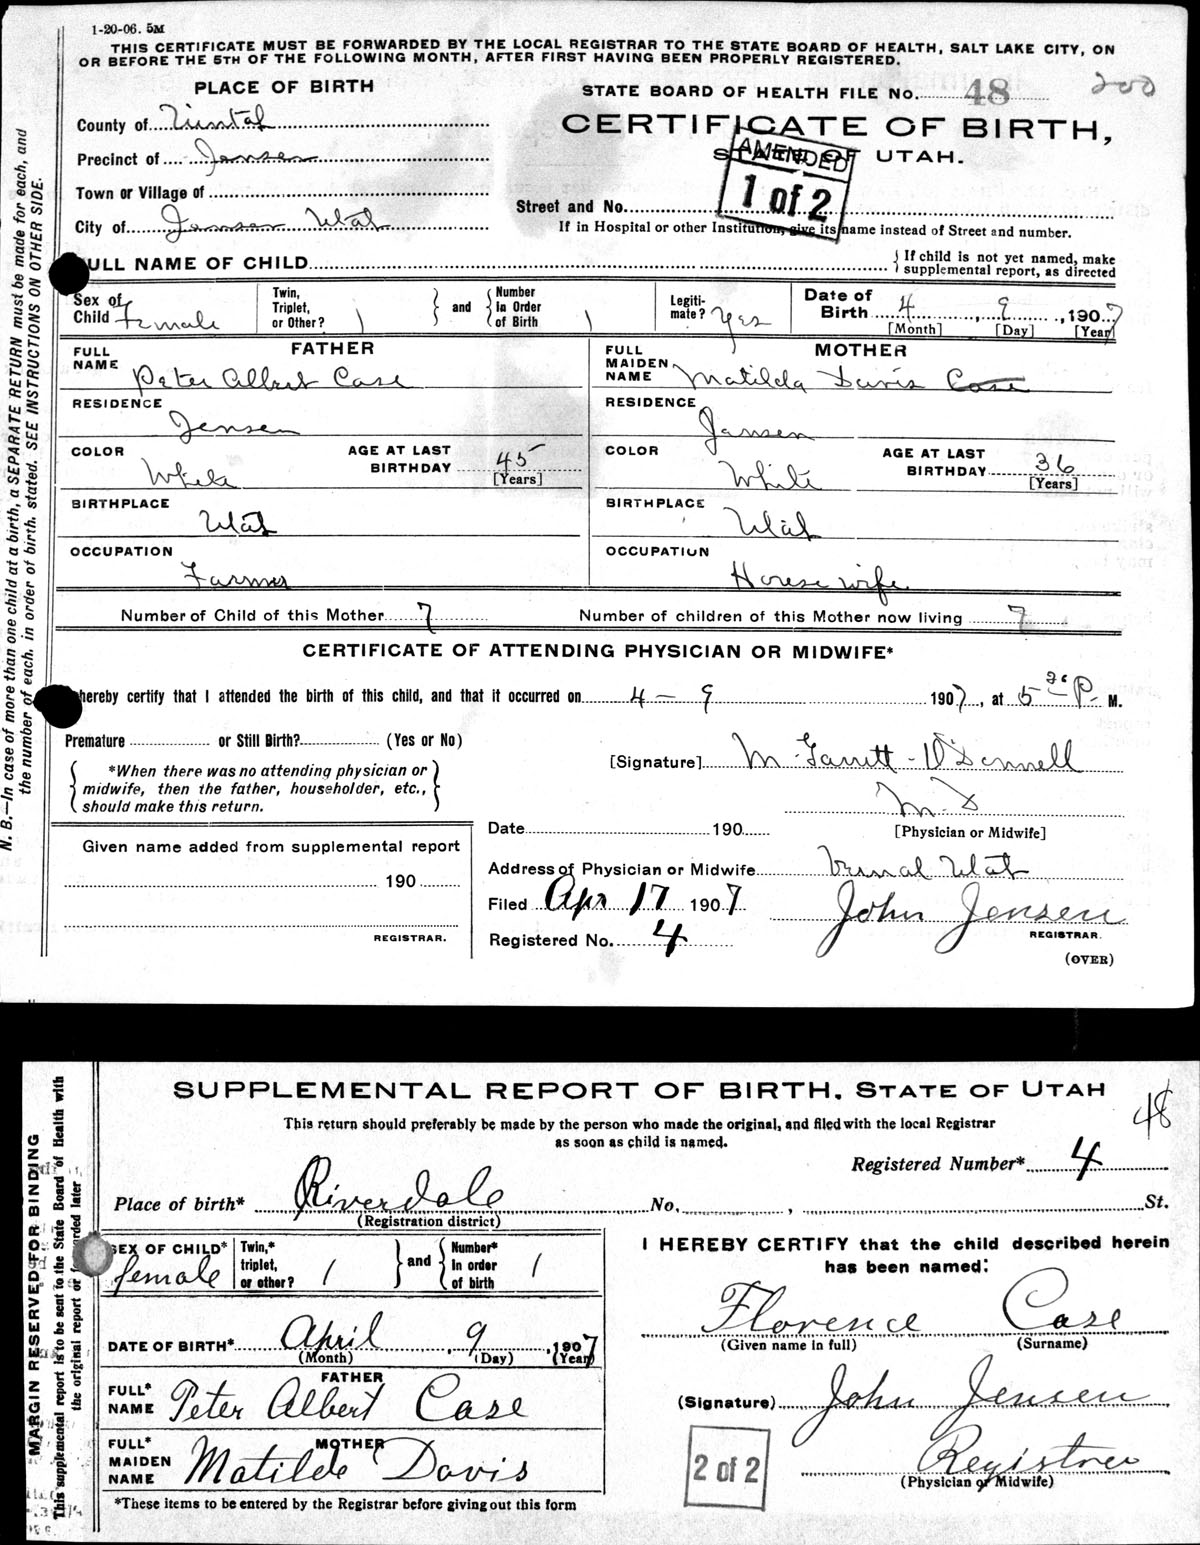 1-20-06. 5M
THIS CERTIFICATE MUST BE FORWARDED BY THE LOCAL REGISTRAR TO THE STATE BOARD OF HEALTH, SALT LAKE CITY, ON
OR BEFORE THE 5TH OF THE FOLLOWING MONTH, AFTER FIRST HAVING BEEN PROPERLY REGISTERED.
PLACE OF BIRTH
STATE BOARD OF HEALTH FILE No. 48
200
County of Uintah
CERTIFICATE OF BIRTH,
Precinct of Jensen
STATE OF UTAH.
AMENDED
1 of 2
Town or Village of
Street and No.
City of Jansen Utah
If in Hospital or other Institution, give its name instead of Street and number.
FULL NAME OF CHILD
If child is not yet named, make
supplemental report, as directed
Sex of Child Female
Twin, Triplet, or Other? 1
and
Number In Order of Birth 1
Legiti-mate? Yes
Date of Birth 4 9 1907
[Month] [Day] [Year]
FATHER
FULL NAME Peter Albert Case
RESIDENCE Jensen
COLOR White
AGE AT LAST BIRTHDAY 45
[Years]
BIRTHPLACE Utah
OCCUPATION Farmer
MOTHER
FULL MAIDEN NAME Matilda Davis Case
RESIDENCE Jansen
COLOR White
AGE AT LAST BIRTHDAY 36
[Years]
BIRTHPLACE Utah
OCCUPATION House wife
Number of Child of this Mother 7
Number of children of this Mother now living 7
CERTIFICATE OF ATTENDING PHYSICIAN OR MIDWIFE*
hereby certify that I attended the birth of this child, and that it occurred on 4 - 9 1907, at 5 P. M.
Premature or Still Birth? (Yes or No)
*When there was no attending physician or
midwife, then the father, householder, etc.,
should make this return.
[Signature] M Garrett-O'Donnell
M D
[Physician or Midwife]
Date 190
Given name added from supplemental report
190
REGISTRAR.
Address of Physician or Midwife Vernal Utah
Filed Apr 17 1907
John Jensen
REGISTRAR.
Registered No. 4
(OVER)
N. B.—In case of more than one child at a birth, a SEPARATE RETURN must be made for each, and
the number of each, in order of birth, stated. SEE INSTRUCTIONS ON OTHER SIDE.
SUPPLEMENTAL REPORT OF BIRTH, STATE OF UTAH
48
This return should preferably be made by the person who made the original, and filed with the local Registrar
as soon as child is named.
Registered Number* 4
Place of birth* Riverdale No. , St.
(Registration district)
SEX OF CHILD* female
Twin,* triplet, or other? 1
and
Number* In order of birth 1
DATE OF BIRTH* April 9, 1907
(Month) (Day) (Year)
FATHER
FULL* NAME Peter Albert Case
MOTHER
FULL* MAIDEN NAME Matilde Davis
*These items to be entered by the Registrar before giving out this form
I HEREBY CERTIFY that the child described herein
has been named:
Florence Case
(Given name in full) (Surname)
(Signature) John Jensen
Registrar
(Physician or Midwife)
2 of 2
MARGIN RESERVED FOR BINDING
This supplemental report is to be sent to the State Board of Health with
the original report or
later